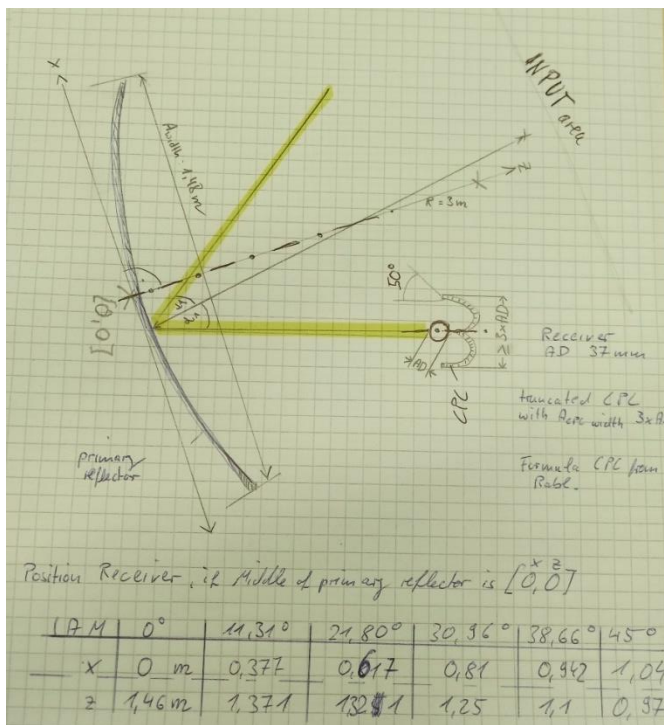 INPUT area
x
Awidth: 1,48m
z
R = 3m
[0,0]
50°
≥ 3xAD
AD
CPC
Receiver
AD 37mm
truncated CPC
with ACPC width 3xA
Formula CPC from
Rabl.
primary
reflector
x z
Position Receiver, if Middle of primary reflector is [0,0]
IAM 0° 11,31° 21,80° 30,96° 38,66° 45°
x 0 m 0,377 0,617 0,81 0,942 1,04
z 1,46m 1,371 1,25 1,1 0,97